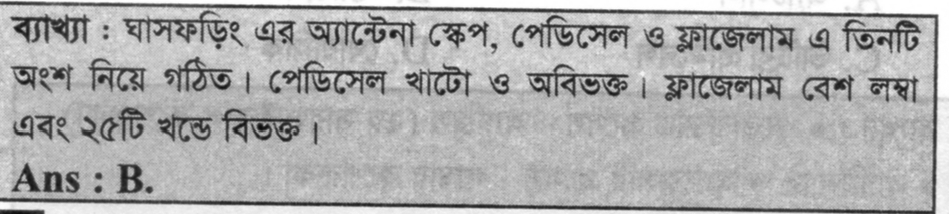 ব্যাখ্যা : ঘাসফড়িং এর অ্যান্টেনা স্কেপ, পেডিসেল ও ফ্লাজেলাম এ তিনটি
অংশ নিয়ে গঠিত। পেডিসেল খাটো ও অবিভক্ত। ফ্লাজেলাম বেশ লম্বা
এবং ২৫টি খন্ডে বিভক্ত।
Ans : B.